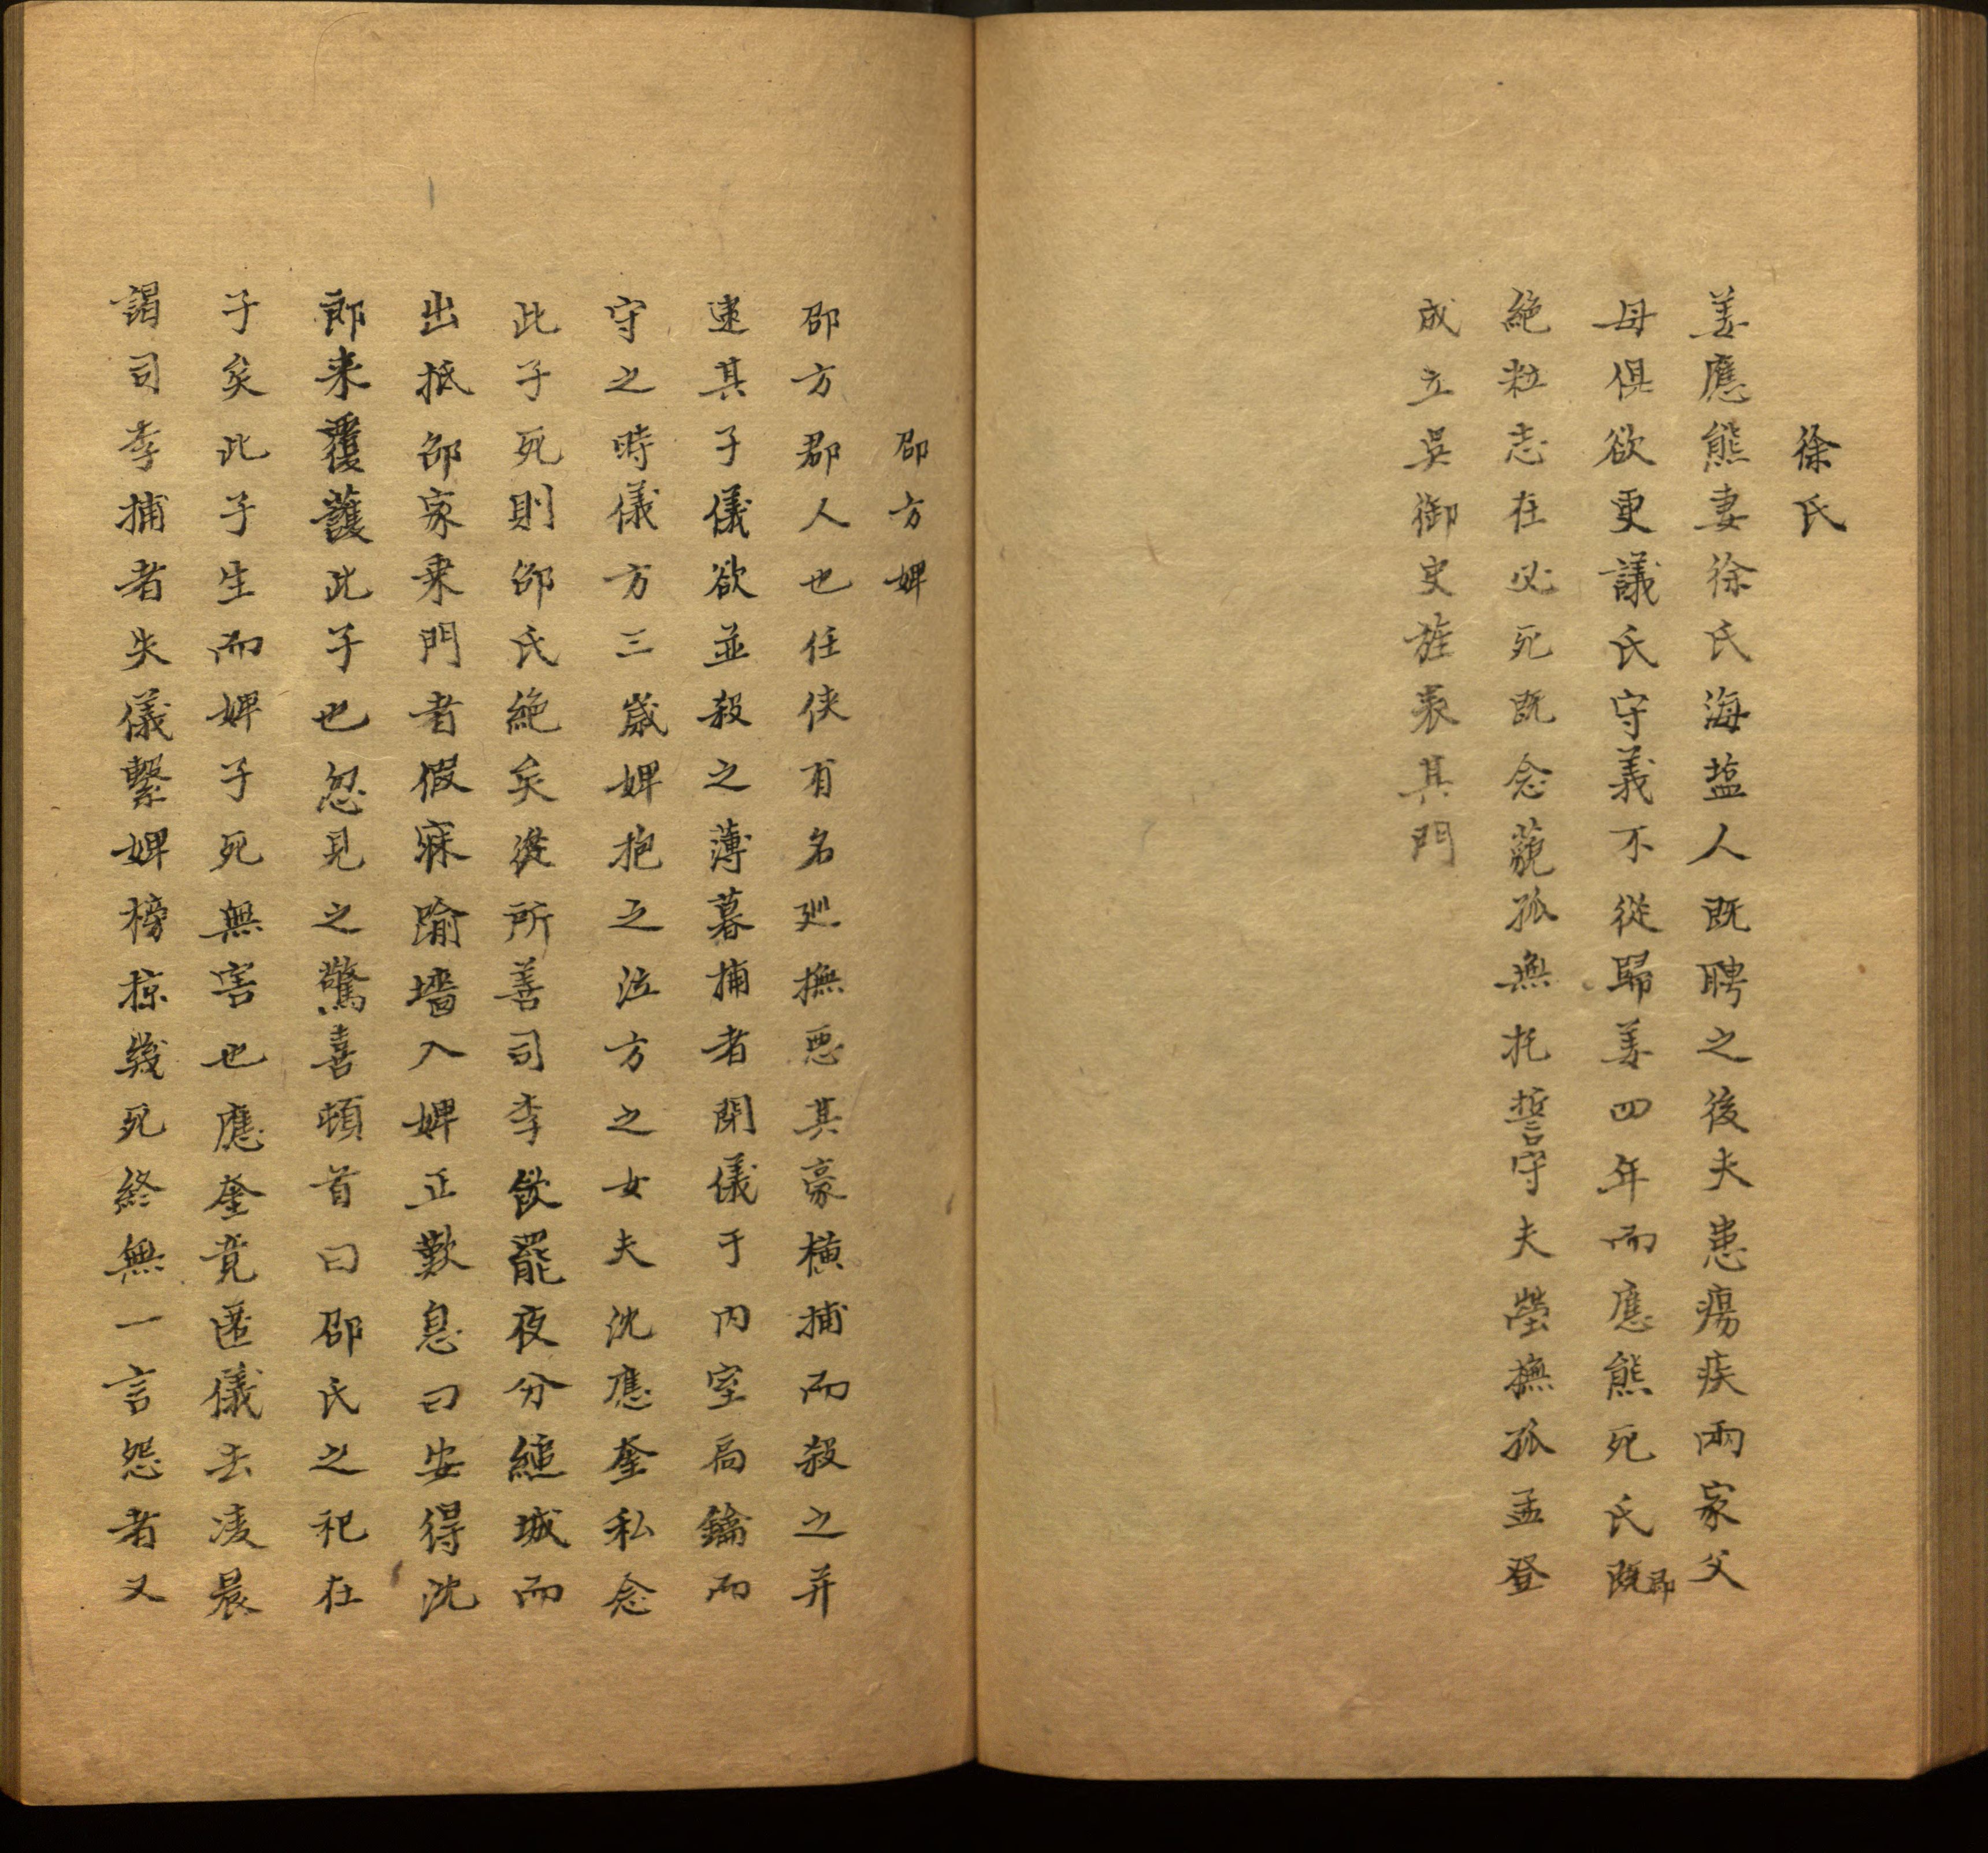 徐氏
姜應熊妻徐氏海盐人既聘之後夫患瘍疾兩家父
母俱欲更議氏守義不從歸姜四年而應熊死氏既即
絶粒志在必死既念藐孤無托誓守夫塋撫孤孟登
成立吳御史旌表其門
邵方婢
邵方郡人也任俠有名廵撫惡其豪横捕而殺之并
逮其子儀欲並殺之薄暮捕者閉儀于内室局鑰而
守之時儀方三歲婢抱之泣方之女夫沈應奎私念
此子死則邵氏絶矣從所善司李飲罷夜分縋城而
出抵邵家乗門者假寐踰墻入婢正歎息曰安得沈
郎来覆護此子也忽見之驚喜頓首曰邵氏之祀在
子矣此子生而婢子死無害也應奎竟匿儀去凌晨
謁司李捕者失儀繫婢榜掠幾死終無一言怨者又